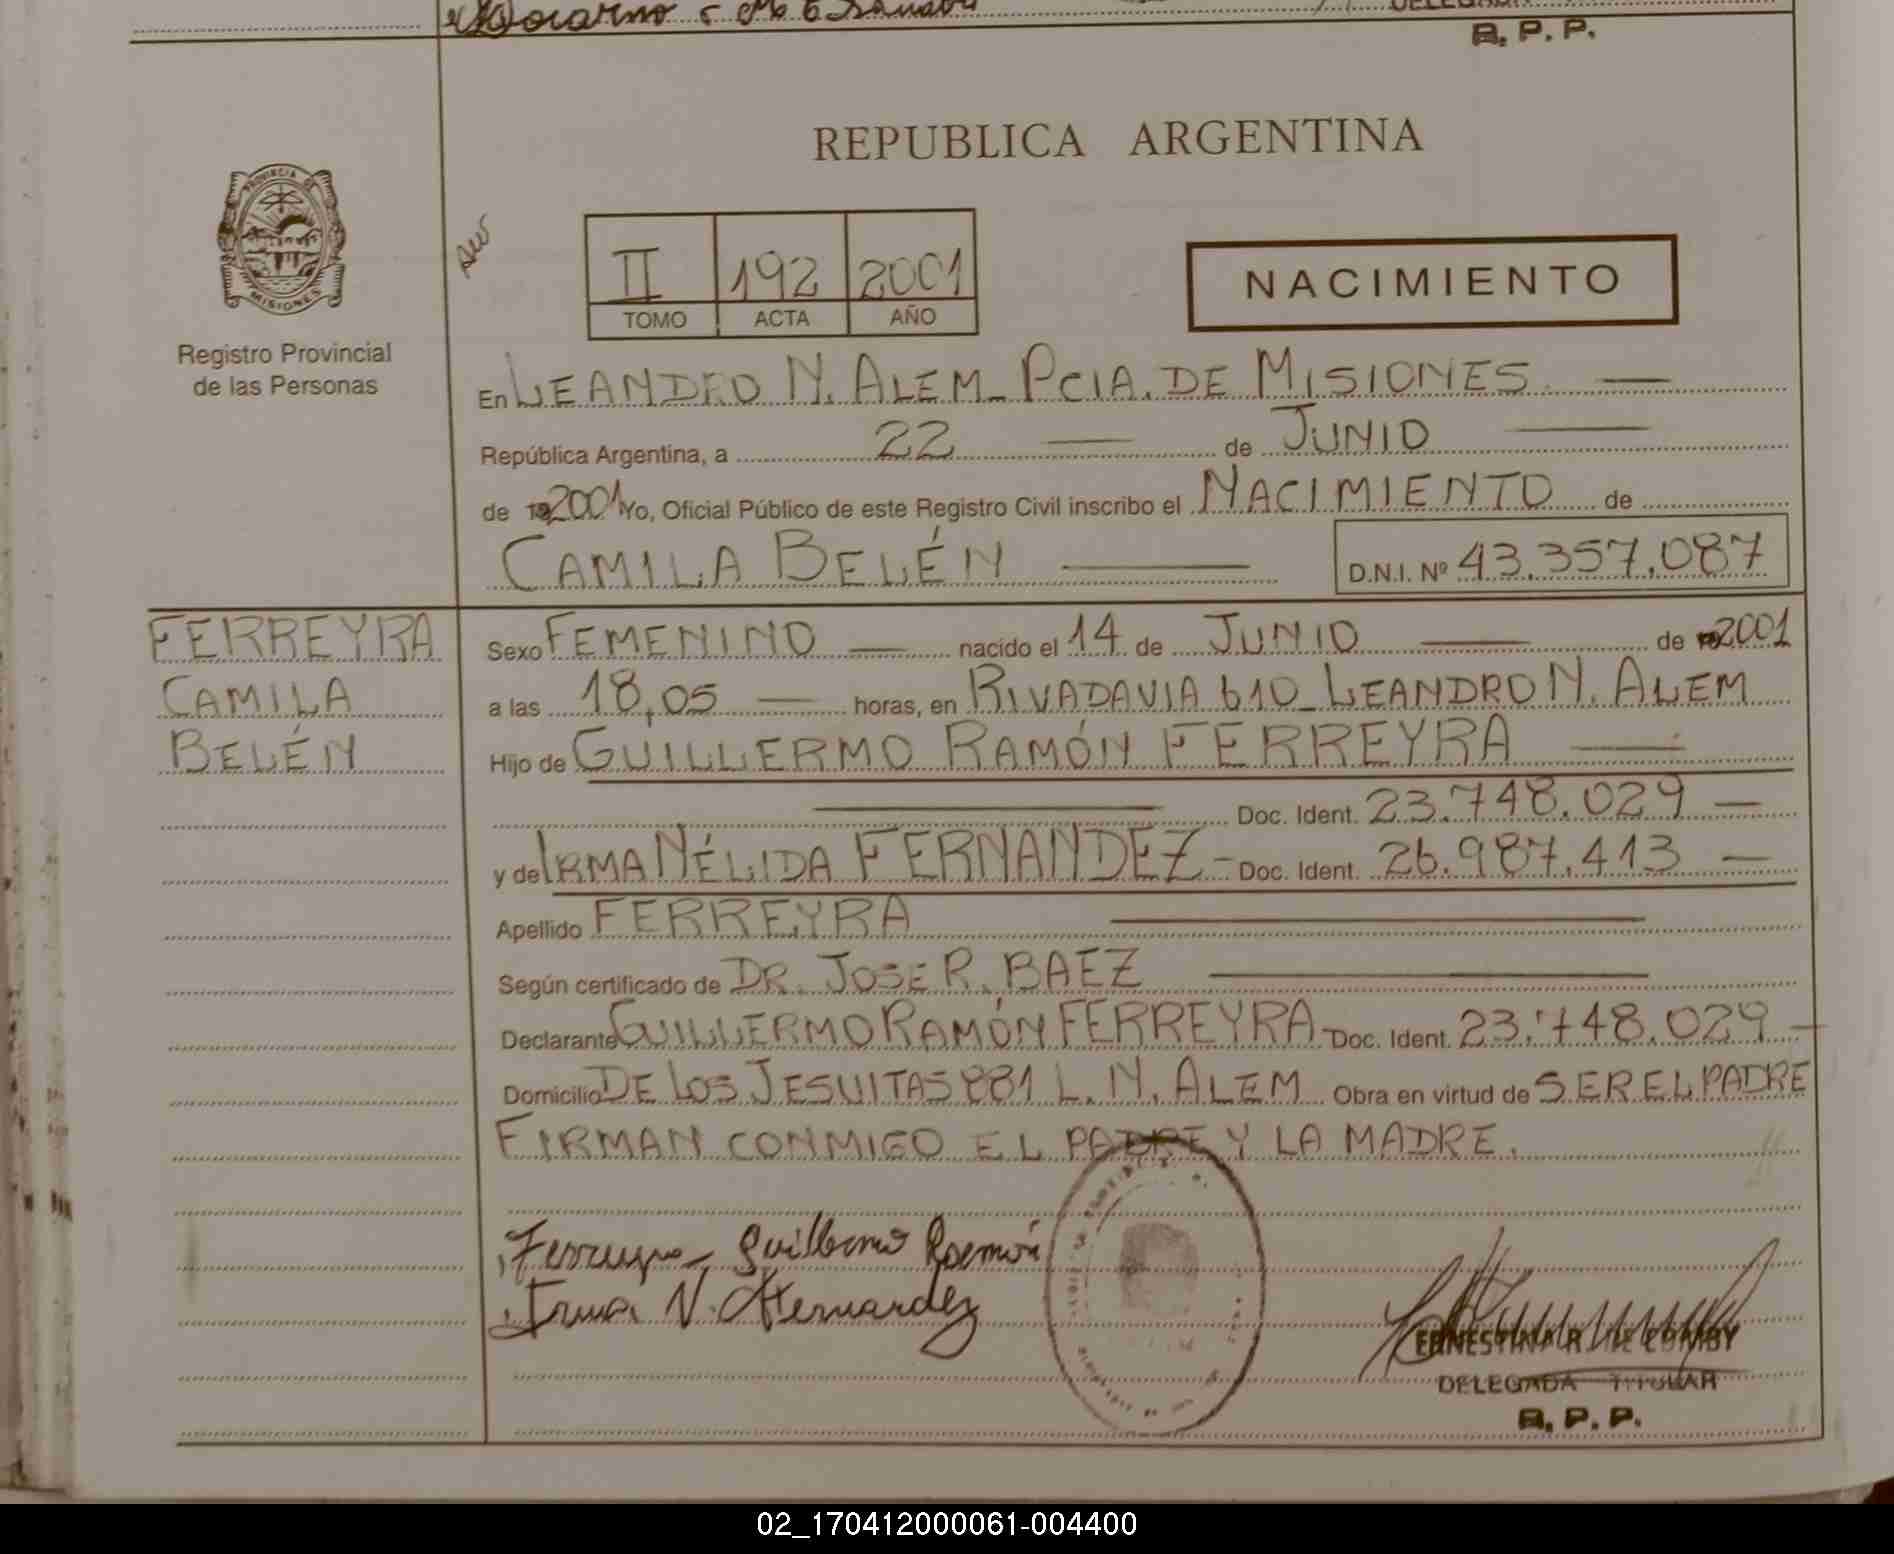 R. P. P.
REPUBLICA ARGENTINA
PROVINCIA DE
MISIONES
Registro Provincial
de las Personas
II 192 2001
TOMO ACTA AÑO
NACIMIENTO
En LEANDRO N. ALEM_ PCIA. DE MISIONES. —
República Argentina, a 22 — de JUNIO —
de 19 2001 Yo, Oficial Público de este Registro Civil inscribo el NACIMIENTO de
CAMILA BELÉN — D.N.I. Nº 43.357.087
FERREYRA
CAMILA
BELÉN
Sexo FEMENINO — nacido el 14 de JUNIO — de 19 2001
a las 18,05 — horas, en RIVADAVIA 610_ LEANDRO N. ALEM
Hijo de GUILLERMO RAMÓN FERREYRA —
— Doc. Ident. 23.748.029 —
y de IRMA NÉLIDA FERNANDEZ - Doc. Ident. 26.987.413 —
Apellido FERREYRA —
Según certificado de DR. JOSE R. BAEZ —
Declarante GUILLERMO RAMÓN FERREYRA - Doc. Ident. 23.748.029 -
Domicilio DE LOS JESUITAS 881 L. N. ALEM Obra en virtud de SER EL PADRE
FIRMAN CONMIGO EL PADRE Y LA MADRE.
Ferreyra - Guillermo Ramón
Irma N.
DELEGADA TITULAR
R. P. P.
02_170412000061-004400